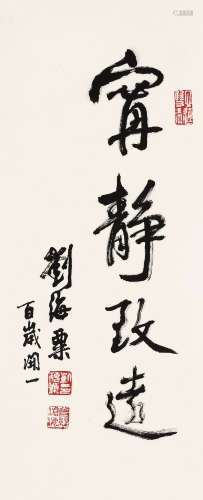 甯靜致遠
劉海粟
百歲開一